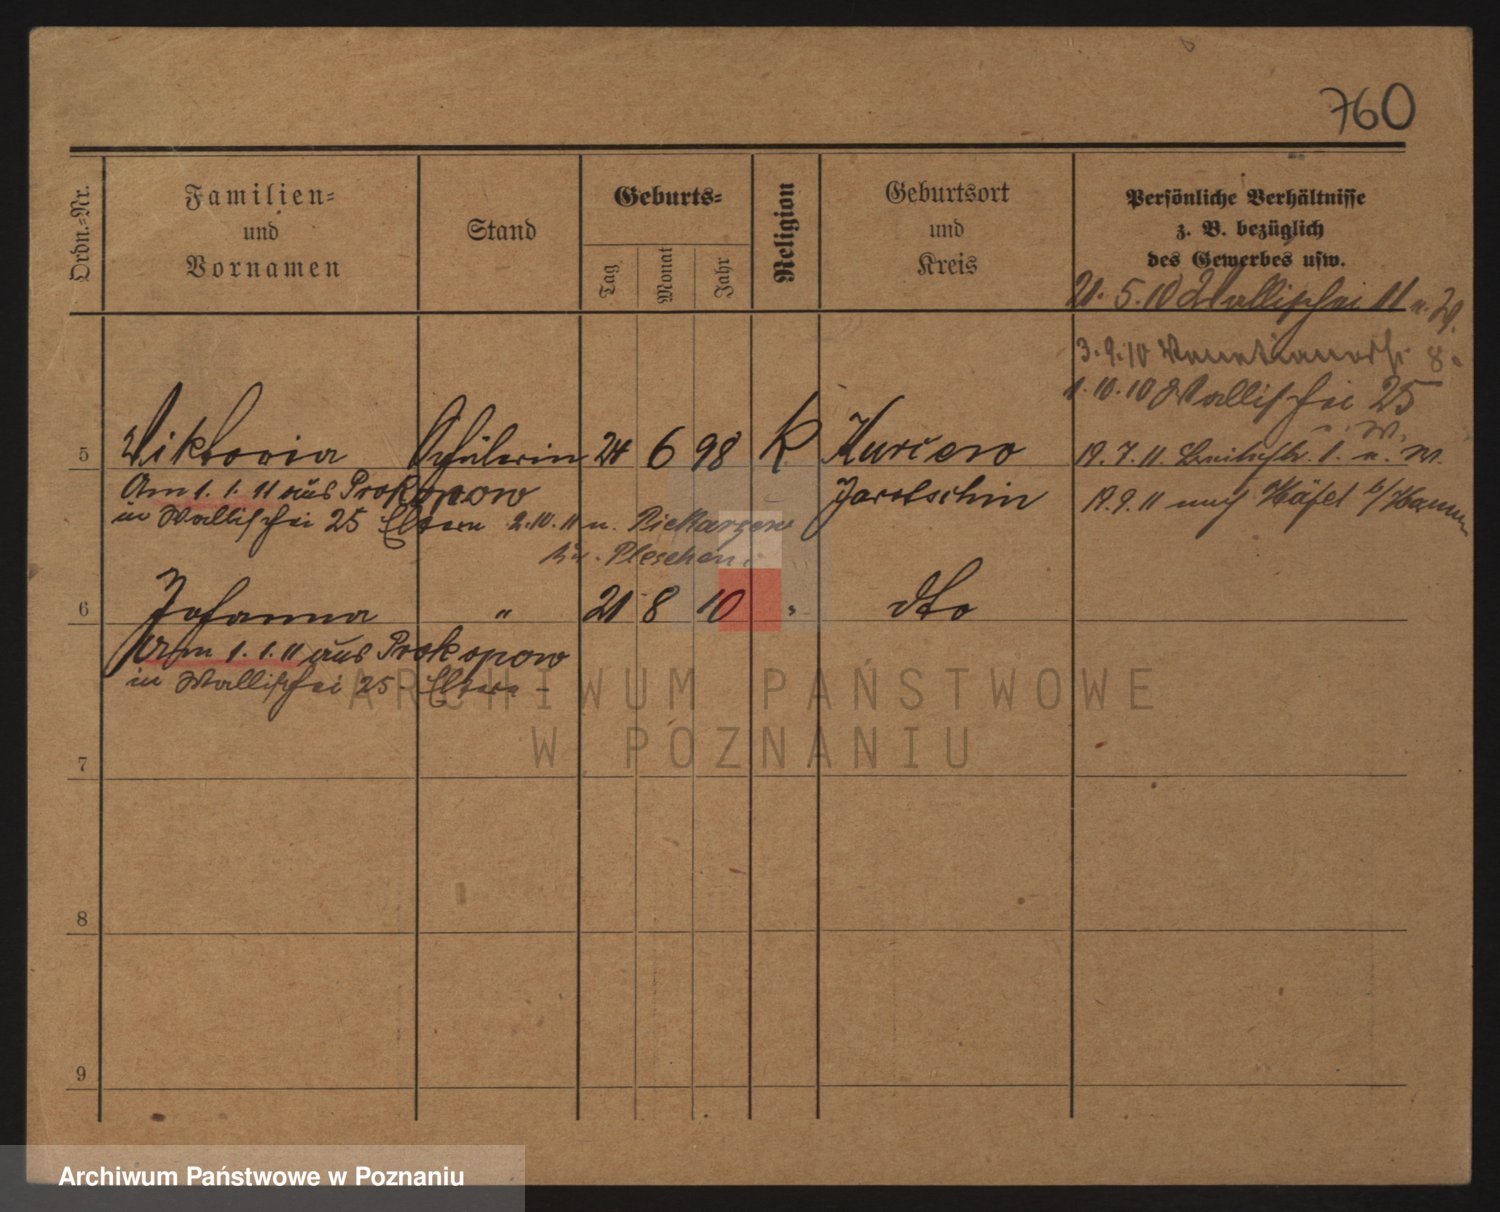 760
Ordn.-Nr.
Familien-
und
Vornamen
Stand
Geburts-
Tag
Monat
Jahr
Religion
Geburtsort
und
Kreis
Persönliche Verhältnisse
z. B. bezüglich
des Gewerbes usw.
21. 5. 10 Wallischei 11 n. W.
3. 9. 10 8.
1. 10. 10 Wallischei 25
5 Viktoria Schülerin 24 6 98 K Kurcewo
19. 7. 11.
Am 1. 1. 11 aus Prokopow Jarotschin
19. 9. 11 nach
in Wallischei 25 Eltern 2. 10. 11 n. Piekarzew
Kr. Pleschen
6 Johanna " 21 8 10 " dto
Am 1. 1. 11 aus Prokopow
in Wallischei 25 - Eltern -
ARCHIWUM PAŃSTWOWE
W POZNANIU
7
8
9
Archiwum Państwowe w Poznaniu